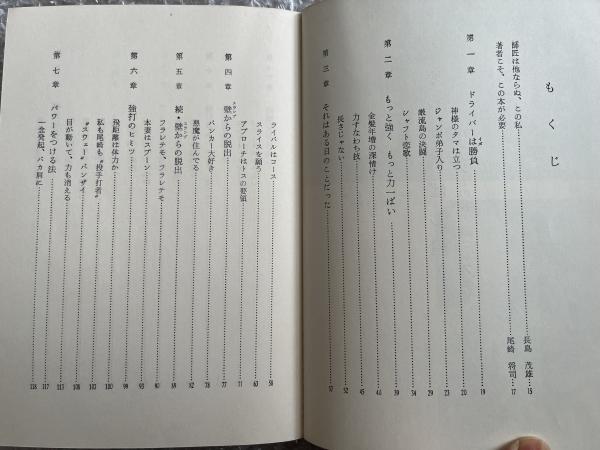 もくじ
師匠は他ならぬ、この私 長島 茂雄 15
著者こそ、この本が必要 尾崎 将司 17
第一章 ドライバーは勝負 19
神様のタマは立つ 20
ジャンボ弟子入り 23
厳流島の決闘 29
シャフト恋歌 34
第二章 もっと強く もっと力一ぱい 39
金髪年増の深情け 40
力すなわち技 45
長さじゃない 52
第三章 それはある日のことだった 57
ライバルはコース 58
スライスを願う 63
アプローチはトスの要領 71
第四章 壁からの脱出 77
バンカー大好き 78
悪魔が住んでる 82
第五章 続・壁からの脱出 89
フラレテモ、フラレテモ 90
本妻はスプーン 94
第六章 強打のヒミツ 99
飛距離は体力か 100
私も尾崎も"投手打者" 103
"スウェー"バンザイ 108
目が動いて、力も消える 113
第七章 パワーをつける法 117
一念発起、バカ肩に 118